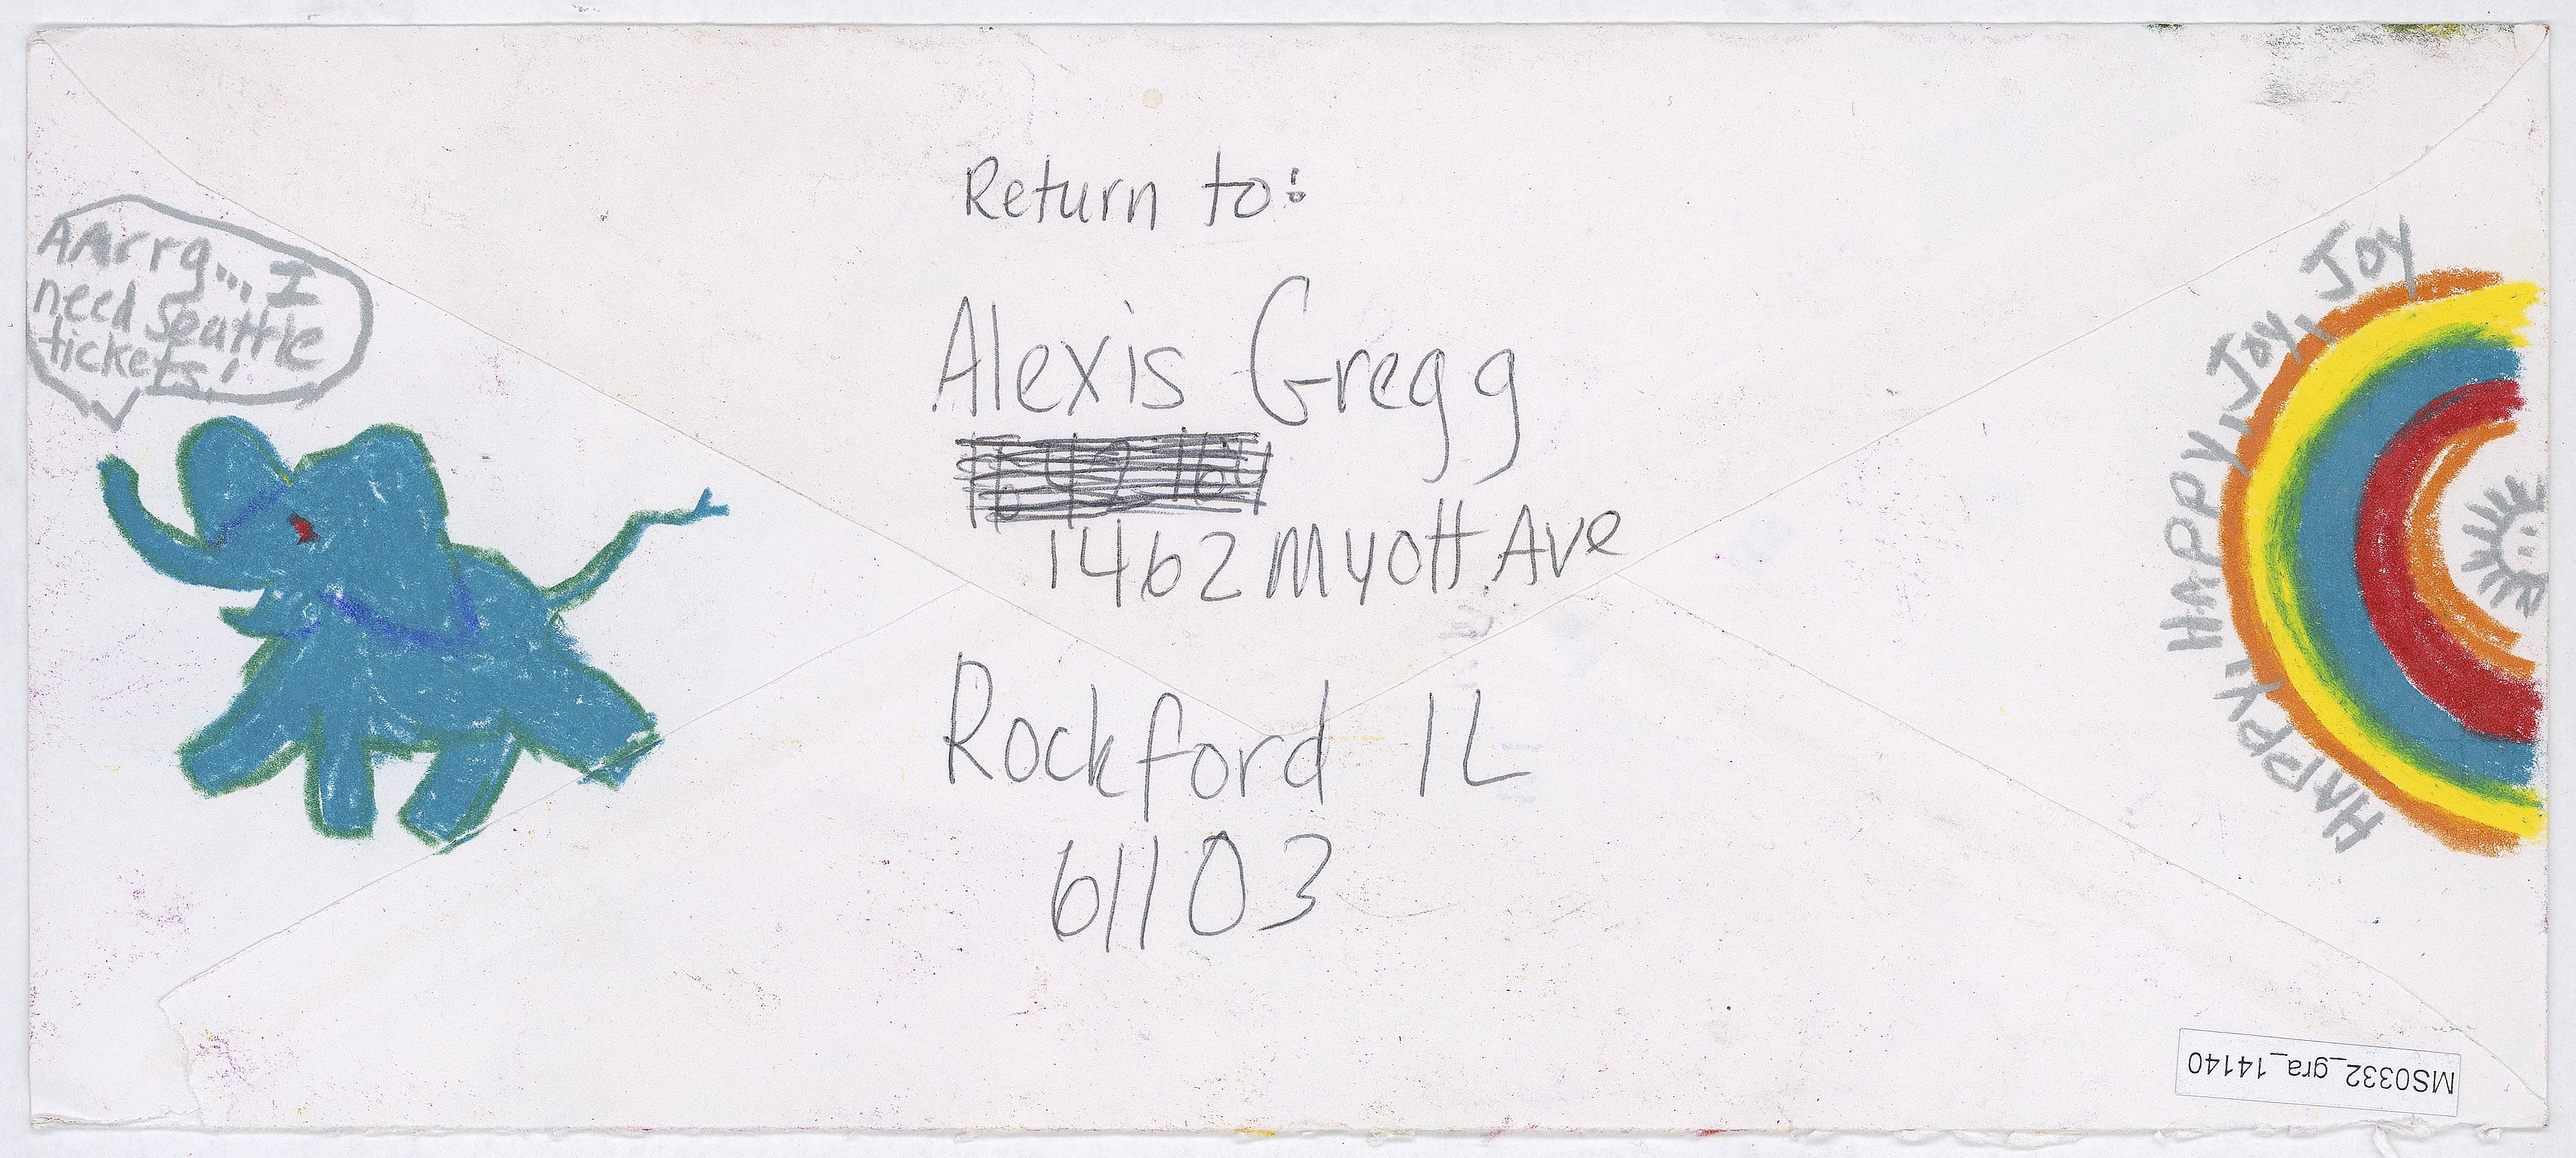 AArrrg... I
need Seattle
tickets!
Return to:
Alexis Gregg
1462 Myott Ave
Rockford IL
61103
HAPPY, HAPPY, Joy, Joy
MS0332_gra_14140